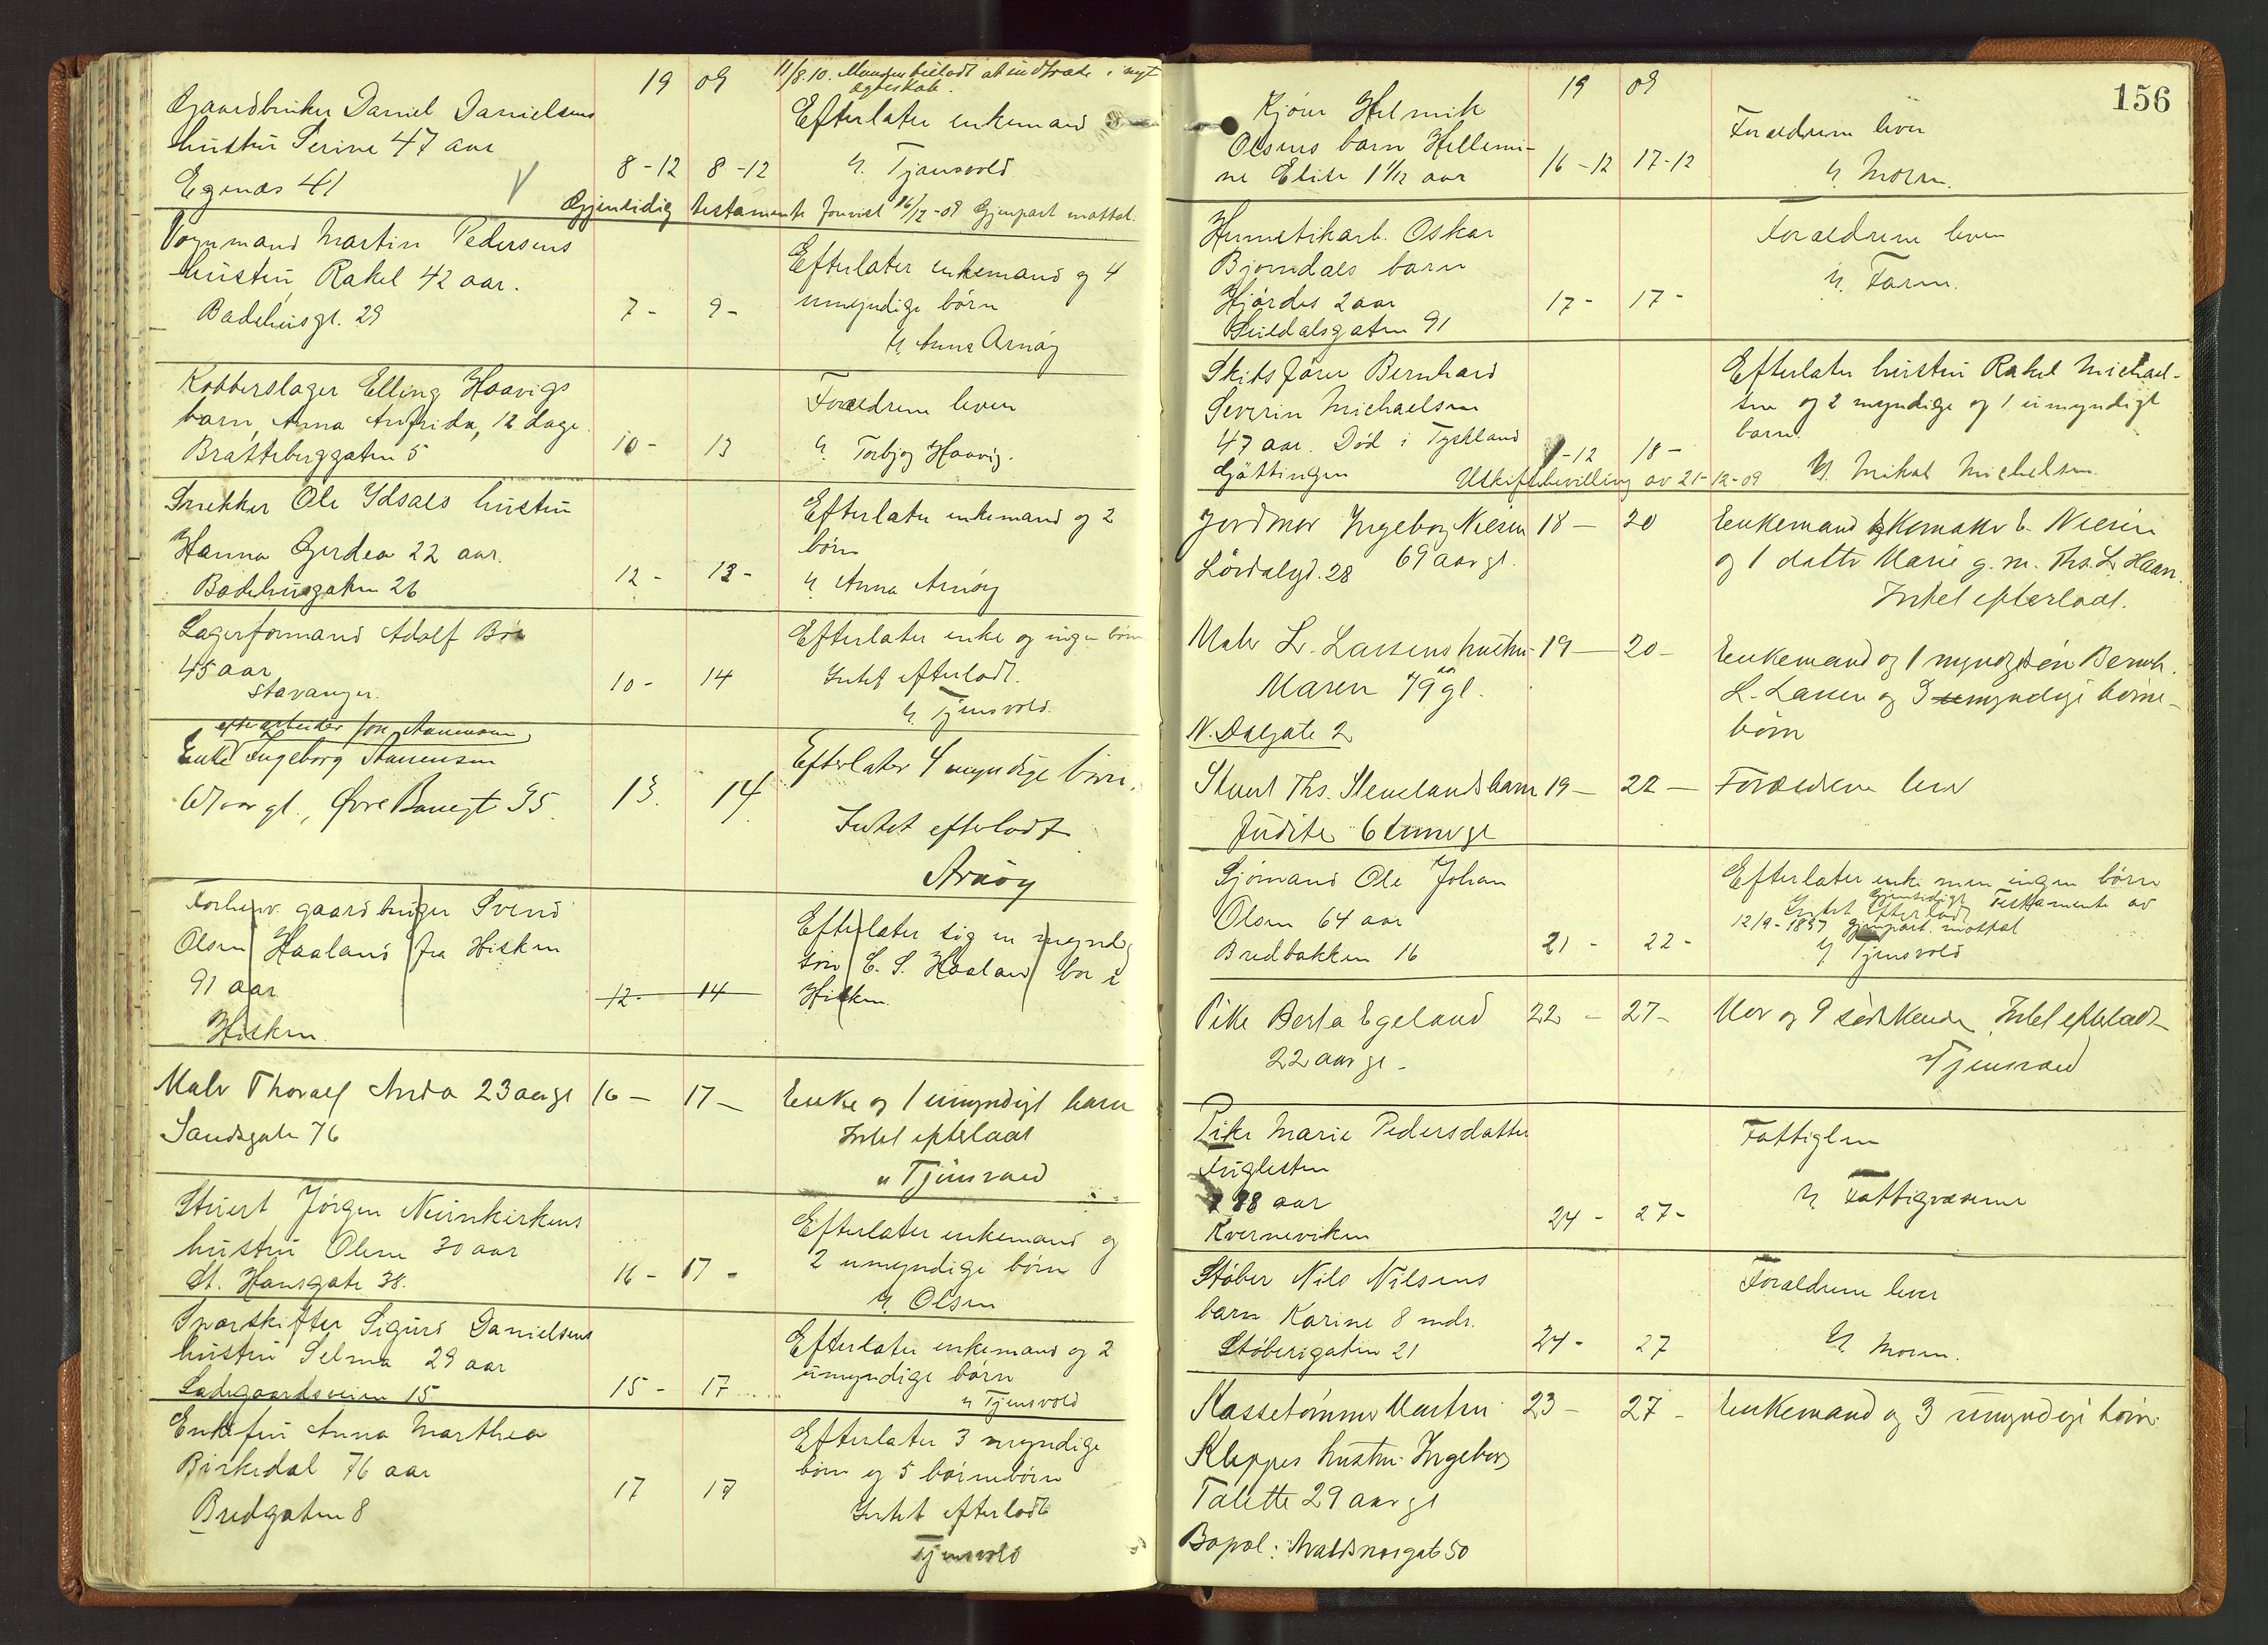 19 09
11/8.10. Manden bevilget at indtræde i nyt
ægteskab.
Gaardbruker Daniel Danielsens
hustru Serine 47 aar
Egenæs 41
8-12 8-12
Efterlater enkemand
v. Tjensvold
Gjensidig testamente forevist 16/12-09 Gjenpart mottat.
Vognmand Martin Pedersens
hustru Rakel 42 aar.
Badehusgt. 29
7- 9-
Efterlater enkemand og 4
umyndige børn
v. Anna Arnøy
Kobberslager Elling Haavigs
barn, Anna Anfrida, 12 dage
Bratteberggaten 5
10- 13
Forældrene lever
v. Torbjør Haavig.
Snekker Ole Ydsals hustru
Hanna Gerdea 22 aar.
Badehusgaten 26
12- 13-
Efterlater enkemand og 2
børn
v. Anna Arnøy
Lagerformand Adolf Bø
45 aar
Stavanger.
10- 14
Efterlater enke og ingen børn
Intet efterladt.
v. Tjensvold.
efter arbeider
Enke Ingeborg
67 aar gl., Øvre Banegt 35.
13. 14
Efterlater 4 myndige børn.
Intet efterladt
Arnøy
Forhenv. gaardbruger Svend
Olsen Haaland fra Hisken
91 aar
Hisken.
12- 14
Efterlater sig en myndig
søn E. S. Haaland bor i
Hisken.
Maler Thoralf Anda 23 aar gl
Sandsgate 76
16- 17-
Enke og 1 umyndigt barn
Intet efterladt
v Tjensvold
Stuert Jørgen Neunkirkens
hustru Olene 30 aar
St. Hansgate 38.
16- 17-
Efterlater enkemand og
2 umyndige børn
v. Olsen
Sporskifter Sigurd Danielsens
hustru Selma 29 aar
Ladegaardsveien 15
15- 17
Efterlater enkemand og 2
umyndige børn
v Tjensvold
Enkefru Anna Marthea
Birkedal 76 aar
Bredgaten 8
17 17
Efterlater 3 myndige
børn og 5 børnebørn
Intet efterladt
Tjensvold
156
19 09
Kjører Helmik
Olsens barn Hellemi-
ne Elise 1 1/12 aar
16-12 17-12
Forældrene lever
v. Moren.
Hermetikarb. Oskar
Bjørndals barn
Hjørdis 2 aar
Suldalsgaten 91
17- 17-
Forældrene lever
v. Faren.
Skibsfører Bernhard
Severin Michaelsen
47 aar. Død i Tyskland
Gøttingen
-12 18-
Efterlater hustru Rakel Michael-
sen og 2 myndige og 1 umyndigt
barn.
Uskiftebevilling av 21-12-09 v. Mikal Michelsen.
Jordmor Ingeborg Nielsen
Lørdalsgd. 28 69 aar gl.
18- 20
Enkemand
og 1 datter Marie g. m. Ths. L. Haan.
Intet efterladt.
Maler L. Larsens hustru
Maren 79 aar gl.
N. Dalgate 2
19- 20-
Enkemand og 1 myndig søn Bernh.
L. Larsen og 3 umyndige børne-
børn
Stuert Ths. Stenelands barn
Judite 6 timer gl
19- 22-
Forældrene lever
Sjømand Ole Johan
Olsen 64 aar
Bredbakken 16
21- 22-
Efterlater enke men ingen børn
Intet efterladt
Gjensidigt Testamente av
12/9-1887 gjenpart mottat
v Tjensvold
Pike Berta Egeland
22 aar gl.
22- 27-
Mor og 9 sødskende Intet efterladt
v Tjensvold
Pike Marie Pedersdatter
Fuglesten
88 aar
Kverneviken
24- 27-
Fattiglem
v Fattigvæsenet
Støber Nils Nilsens
barn Karine 8 mdr.
Støberigaten 21
24- 27
Forældrene lever
v Moren.
Kassetømmer Martin
Kleppes hustru Ingeborg
Talette 29 aar gl
Bopæl: Avaldsnesgate 50
23- 27-
Enkemand og 3 umyndige børn.